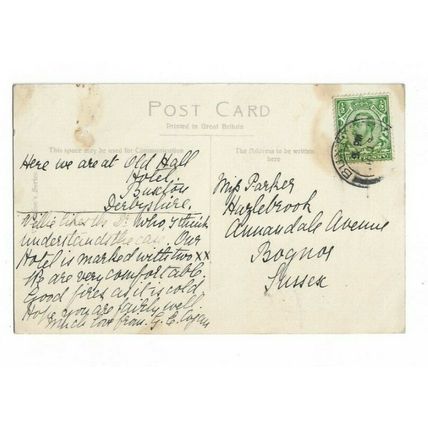 POST CARD
Printed in Great Britain
This space may be used for Communication
The Address to be written here
Here we are at Old Hall
Hotel
Buxton
Derbyshire.
Willie likes the Dr. who, I think
understands the case. Our
Hotel is marked with two XX
We are very comfortable.
Good fires as it is cold
Hope you are fairly well.
Much love from G. E.
Miss Parker
Hazlebrook
Annandale Avenue
Bognor
Sussex